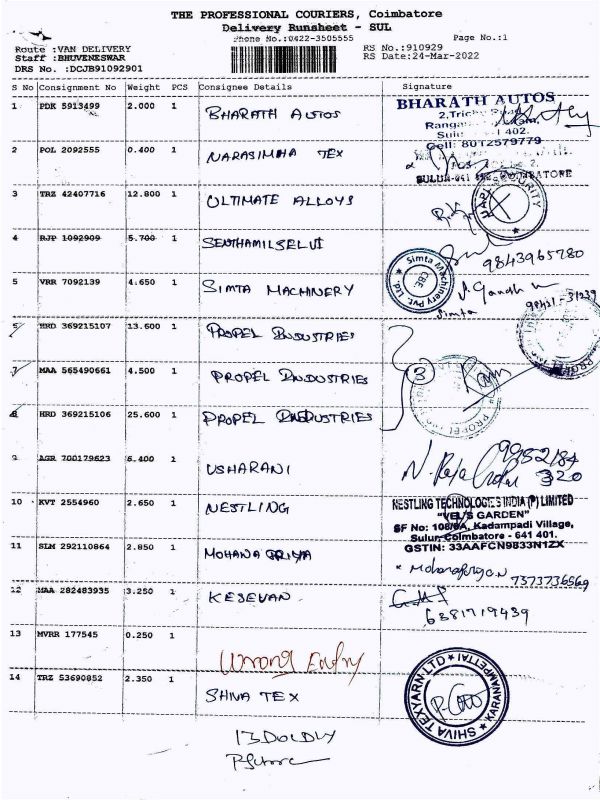 THE PROFESSIONAL COURIERS, Coimbatore
Delivery Runsheet - SUL
Phone No.:0422-3505555
Page No.:1
Route :VAN DELIVERY
RS No.:910929
Staff :BHUVENESWAR
RS Date:24-Mar-2022
DRS No. :DCJB91092901
S No Consignment No Weight PCS Consignee Details Signature
1 PDK 5913499 2.000 1 BHARATH AUTOS
BHARATH AUTOS
Cell: 8012579779
2 POL 2092555 0.400 1 NARASIMHA TEX
3 TRZ 42407716 12.800 1 ULTIMATE ALLOYS
SECURITY
4 RJP 1092909 5.700 1 SENTHAMILSELVI
9843965780
5 VRR 7092139 4.650 1 SIMTA MACHINERY
Simta Machinery Pvt. Ltd.
CBE
Simta
6 HRD 369215107 13.600 1 PROPEL INDUSTRIES
7 MAA 565490661 4.500 1 PROPEL INDUSTRIES
3
8 HRD 369215106 25.600 1 PROPEL INDUSTRIES
PROPEL
9 AGR 700179623 6.400 1 USHARANI
320
10 KVT 2554960 2.650 1 NESTLING
NESTLING TECHNOLOGIES INDIA (P) LIMITED
"VEL'S GARDEN"
SF No: 108/8A, Kadampadi Village,
Sulur, Coimbatore - 641 401.
GSTIN: 33AAFCN9833N1ZX
11 SLM 292110864 2.850 1 MOHANA PRIYA
7373736569
12 MAA 282483935 3.250 1 KESEVAN
6381719439
13 MVRR 177545 0.250 1
Wrong Entry
14 TRZ 53690852 2.350 1 SHIVA TEX
SHIVA TEXYARN LTD
KARANAMPETTAI